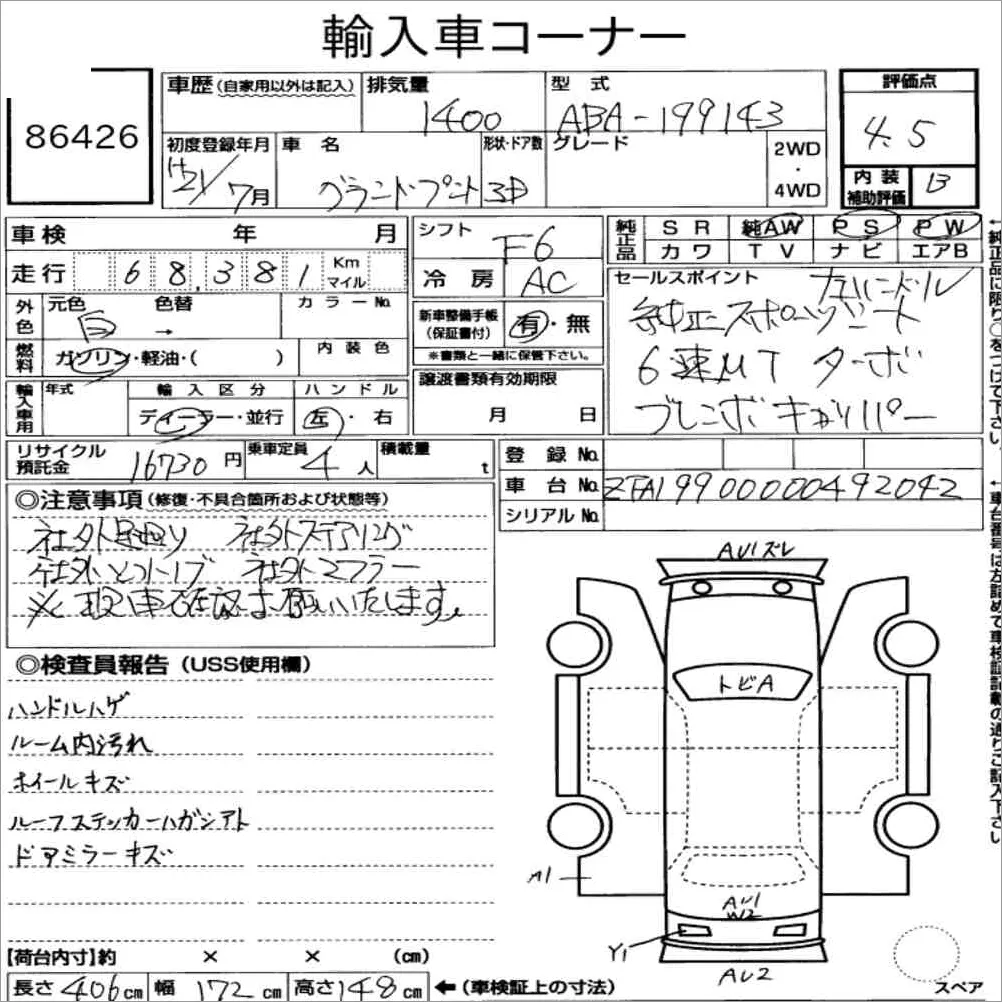 輸入車コーナー
86426
車歴 (自家用以外は記入) 排気量 1400 型式 ABA-199143
初度登録年月 H21/7月 車名 グランドプント 形状・ドア数 3D グレード 2WD・4WD
評価点 4.5
内装補助評価 B
車検 年 月
走行 68,381 Km マイル
シフト F6
冷房 AC
純正品 SR 純AW PS PW
カワ TV ナビ エアB
外色 元色 白 色替 → カラーNo.
燃料 ガソリン・軽油・( ) 内装色
新車整備手帳 (保証書付) 有・無
※書類と一緒に保管下さい。
セールスポイント 左ハンドル
純正スポーツシート
6速MT ターボ
ブレンボキャリパー
輸入車用 年式 輸入区分 ディーラー・並行 ハンドル 左・右
譲渡書類有効期限 月 日
リサイクル預託金 16730円 乗車定員 4人 積載量 t
登録No.
車台No. ZFA19900000492042
シリアルNo.
◎注意事項 (修復・不具合箇所および状態等)
社外足廻り 社外ステアリング
社外シフトノブ 社外マフラー
※現車確認お願いいたします。
◎検査員報告 (USS使用欄)
ハンドルハゲ
ルーム内汚れ
ホイールキズ
ルーフステッカーハガシアト
ドアミラーキズ
AU1ズレ
トビA
A1
AU1
W2
Y1
AU2
スペア
【荷台内寸】約 × × (cm)
長さ 406cm 幅 172cm 高さ 148cm ←(車検証上の寸法)
←純正品に限り○をつけて下さい。
←車台番号は左詰めで車検証記載の通りご記入下さい